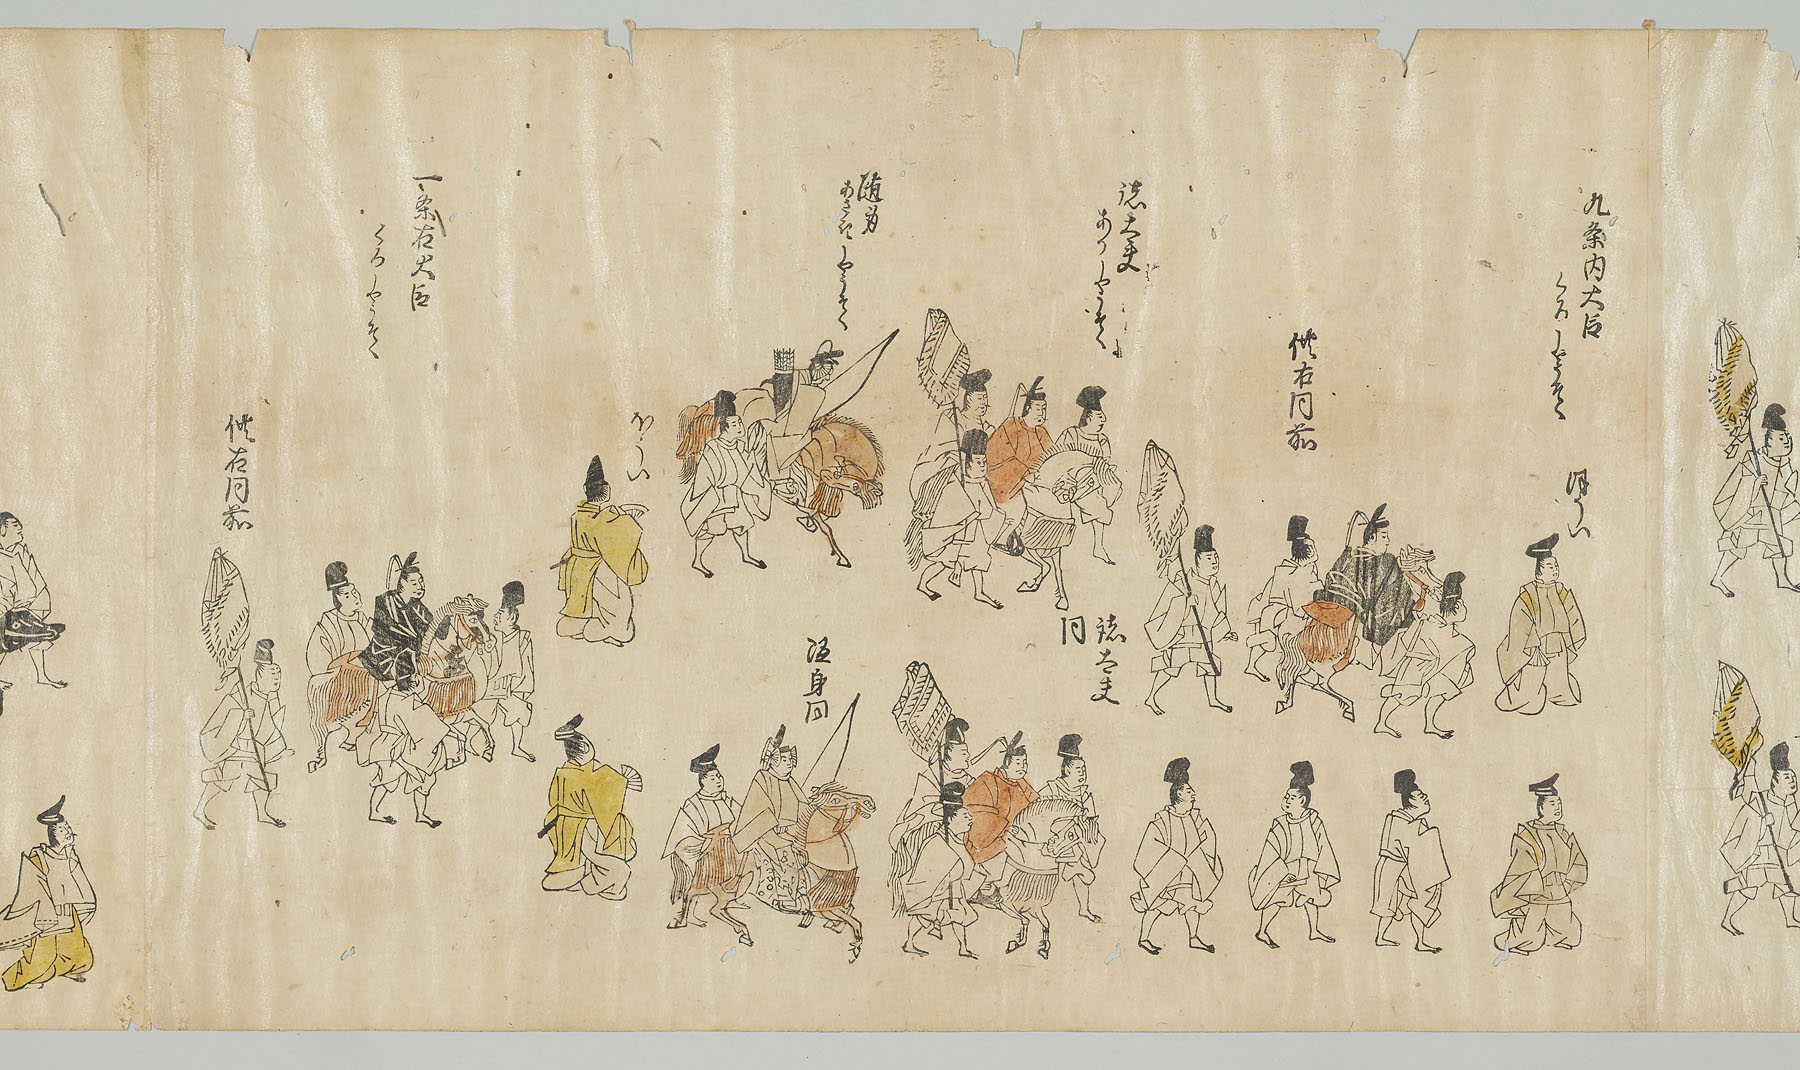 九条内大臣
くろしやうそく
ほうい
供右同前
諸大夫
あかしやうそく
諸大夫
同
随身
あさきしやうそく
随身同
ほうい
一条右大臣
くろしやうそく
供右同前